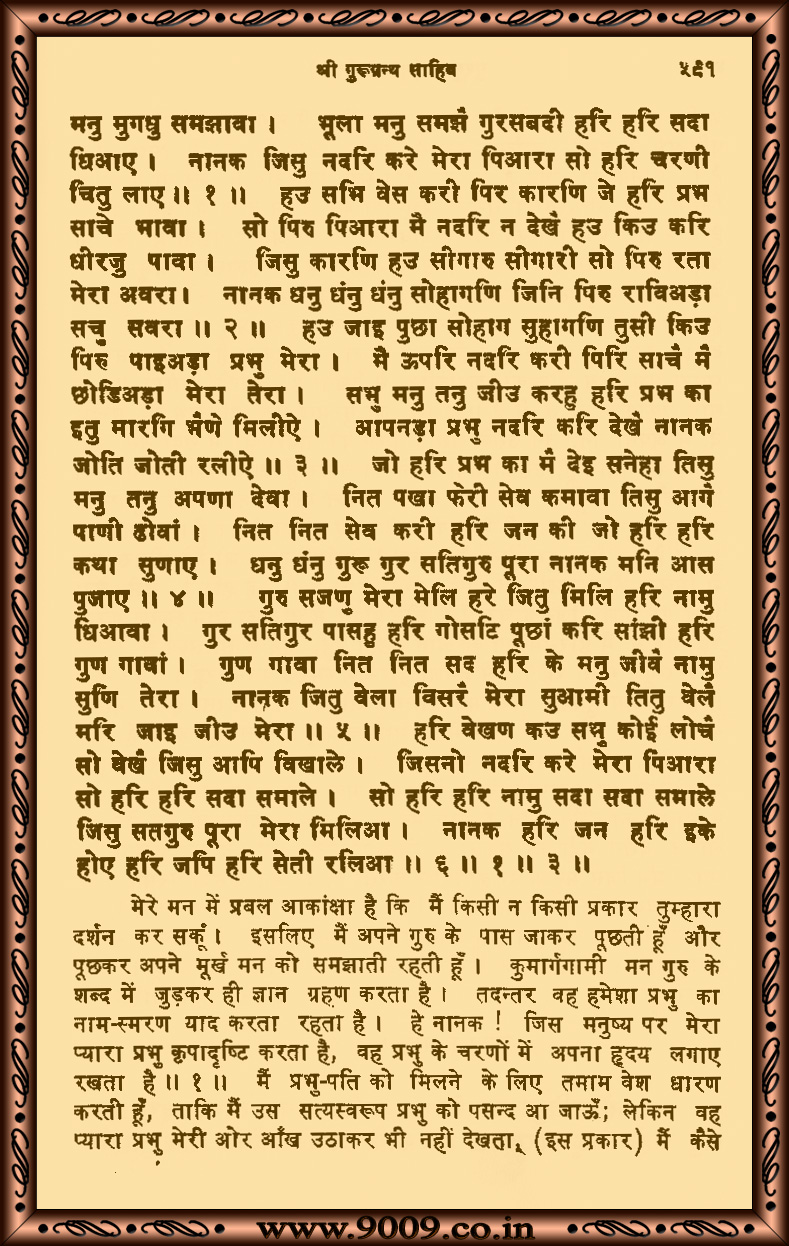 श्री गुरूग्रन्थ साहिब ५९१
मनु मुगधु समझावा । भूला मनु समझै गुरसबदी हरि हरि सदा
धिआए । नानक जिसु नदरि करे मेरा पिआरा सो हरि चरणी
चितु लाए ॥ १ ॥ हउ सभि वेस करी पिर कारणि जे हरि प्रभ
साचे भावा । सो पिरु पिआरा मै नदरि न देखै हउ किउ करि
धीरजु पावा । जिसु कारणि हउ सीगारु सीगारी सो पिरु रता
मेरा अवरा । नानक धनु धंनु धंनु सोहागणि जिनि पिरु राविअड़ा
सचु सवरा ॥ २ ॥ हउ जाइ पुछा सोहाग सुहागणि तुसी किउ
पिरु पाइअड़ा प्रभु मेरा । मै ऊपरि नदरि करी पिरि साचै मै
छोडिअड़ा मेरा तेरा । सभु मनु तनु जीउ करहु हरि प्रभ का
इतु मारगि भैणे मिलीऐ । आपनड़ा प्रभु नदरि करि देखै नानक
जोति जोती रलीऐ ॥ ३ ॥ जो हरि प्रभ का मै देइ सनेहा तिसु
मनु तनु अपणा देवा । नित पखा फेरी सेव कमावा तिसु आगै
पाणी ढोवां । नित नित सेव करी हरि जन की जो हरि हरि
कथा सुणाए । धनु धंनु गुरू गुर सतिगुरु पूरा नानक मनि आस
पुजाए ॥ ४ ॥ गुरु सजणु मेरा मेलि हरे जितु मिलि हरि नामु
धिआवा । गुर सतिगुर पासहु हरि गोसटि पूछां करि सांझी हरि
गुण गावां । गुण गावा नित नित सद हरि के मनु जीवै नामु
सुणि तेरा । नानक जितु वेला विसरै मेरा सुआमी तितु वेलै
मरि जाइ जीउ मेरा ॥ ५ ॥ हरि वेखण कउ सभु कोई लोचै
सो वेखै जिसु आपि विखाले । जिसनो नदरि करे मेरा पिआरा
सो हरि हरि सदा समाले । सो हरि हरि नामु सदा सदा समाले
जिसु सतगुरु पूरा मेरा मिलिआ । नानक हरि जन हरि इके
होए हरि जपि हरि सेती रलिआ ॥ ६ ॥ १ ॥ ३ ॥
मेरे मन में प्रबल आकांक्षा है कि मैं किसी न किसी प्रकार तुम्हारा
दर्शन कर सकूँ । इसलिए मैं अपने गुरु के पास जाकर पूछती हूँ और
पूछकर अपने मूर्ख मन को समझाती रहती हूँ । कुमार्गगामी मन गुरु के
शब्द में जुड़कर ही ज्ञान ग्रहण करता है । तदन्तर वह हमेशा प्रभु का
नाम-स्मरण याद करता रहता है । हे नानक ! जिस मनुष्य पर मेरा
प्यारा प्रभु कृपादृष्टि करता है, वह प्रभु के चरणों में अपना हृदय लगाए
रखता है ॥ १ ॥ मैं प्रभु-पति को मिलने के लिए तमाम वेश धारण
करती हूँ, ताकि मैं उस सत्यस्वरूप प्रभु को पसन्द आ जाऊँ; लेकिन वह
प्यारा प्रभु मेरी ओर आँख उठाकर भी नहीं देखता, (इस प्रकार) मैं कैसे
www.9009.co.in